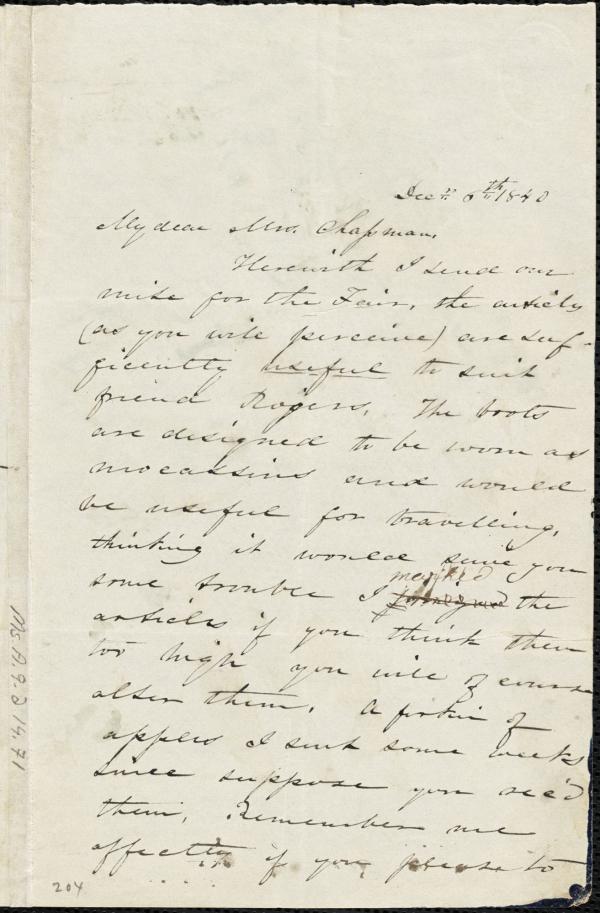 Decr. 6th 1840
My dear Mrs. Chapman,
Herewith I send our
mite for the Fair, the articles
(as you will perceive) are suf-
ficiently useful to suit
friend Rogers. The boots
are designed to be worn as
mocassins and would
be useful for travelling,
thinking it would save you
some trouble I marked the
articles if you think them
too high you will of course
alter them. A firkin of
apples I sent some weeks
since suppose you rec'd
them. Remember me
affectly if you please to
204
Ms.A.9.2.14.71